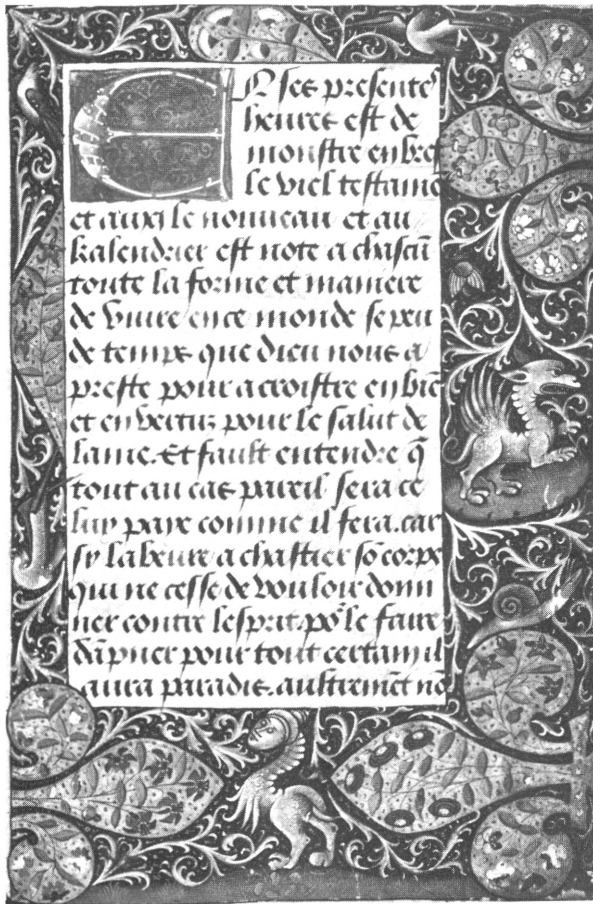 En ses presentes
heures est de
monstre en bref
le viel testame
et auxi le nouveau et au
kalendrier est note a chascũ
toute la forme et maniere
de vivre en ce monde se peu
de temps que dieu nous a
preste pour acroistre en biẽ
et en vertuz pour le salut de
lame. Et fault entendre q̃
tout au cas pareil sera ce
luy paye comme il fera. car
sy labeure a chastier sõ corps
qui ne cesse de vouloir domi
ner contre lesprit. po᷑ le faire
dãpner pour tout certain il
aura paradis. aultremẽt nõ